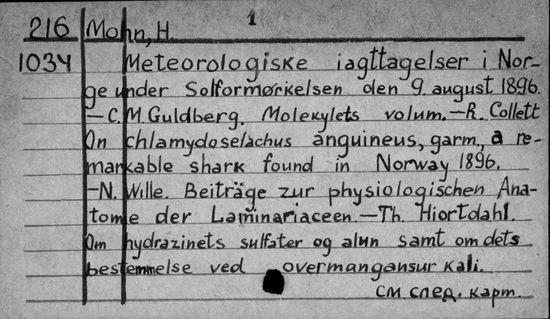 1
216 Mohn, H.
1034 Meteorologiske iagttagelser i Nor-
ge under Solformørkelsen den 9. august 1896.
—C. M. Guldberg. Molekylets volum.—R. Collett
On chlamydoselachus anguineus, garm., a re-
markable shark found in Norway 1896.
—N. Wille. Beiträge zur physiologischen Ana-
tomie der Laminariaceen.—Th. Hiortdahl.
Om hydrazinets sulfater og alun samt om dets
bestemmelse ved overmangansur kali.
см. след. карт.